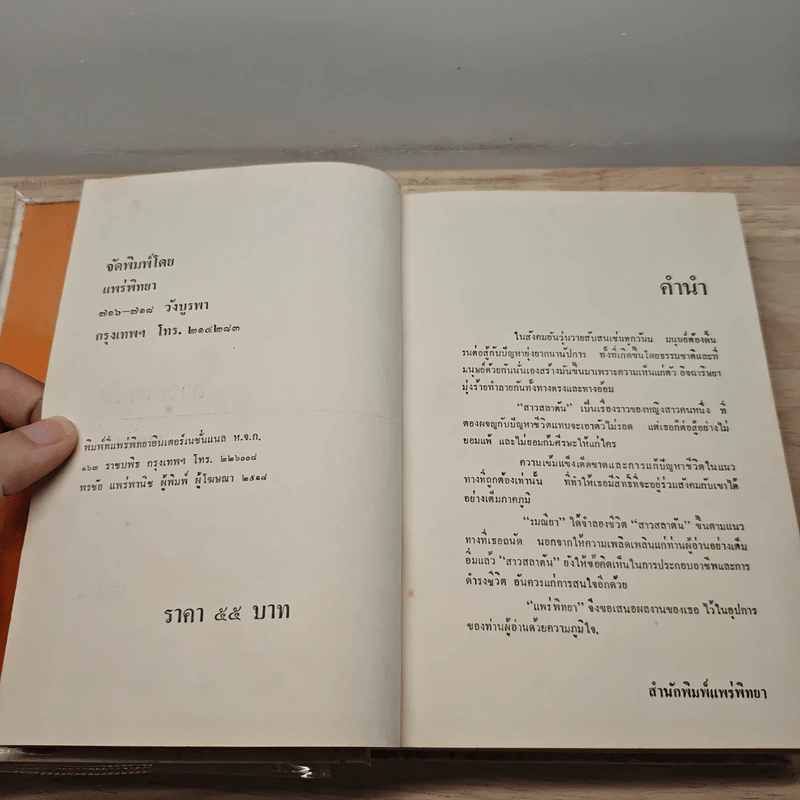 จัดพิมพ์โดย
แพร่พิทยา
๗๑๖—๗๑๘ วังบูรพา
กรุงเทพฯ โทร. ๒๑๔๒๘๓
พิมพ์ที่แพร่พิทยาอินเตอร์เนชั่นแนล ห.จ.ก.
๑๖๓ ราชบพิธ กรุงเทพฯ โทร. ๒๒๖๐๐๘
พรชัย แพร่พานิช ผู้พิมพ์ ผู้โฆษณา ๒๕๑๘
ราคา ๕๕ บาท
คำนำ
ในสังคมอันวุ่นวายสับสนเช่นทุกวันนี้ มนุษย์ต้องดิ้น
รนต่อสู้กับปัญหายุ่งยากนานัปการ ทั้งที่เกิดขึ้นโดยธรรมชาติและที่
มนุษย์ด้วยกันนั่นเองสร้างมันขึ้นมาเพราะความเห็นแก่ตัว อิจฉาริษยา
มุ่งร้ายทำลายกันทั้งทางตรงและทางอ้อม
“สาวสลาตัน” เป็นเรื่องราวของหญิงสาวคนหนึ่ง ที่
ต้องผจญกับปัญหาชีวิตแทบจะเอาตัวไม่รอด แต่เธอก็ต่อสู้อย่างไม่
ยอมแพ้ และไม่ยอมก้มศีรษะให้แก่ใคร
ความเข้มแข็งเด็ดขาดและการแก้ปัญหาชีวิตในแนว
ทางที่ถูกต้องเท่านั้น ที่ทำให้เธอมีสิทธิ์ที่จะอยู่ร่วมสังคมกับเขาได้
อย่างเต็มภาคภูมิ
“รมณียา” ได้จำลองชีวิต “สาวสลาตัน” ขึ้นตามแนว
ทางที่เธอถนัด นอกจากให้ความเพลิดเพลินแก่ท่านผู้อ่านอย่างเต็ม
อิ่มแล้ว “สาวสลาตัน” ยังให้ข้อคิดเห็นในการประกอบอาชีพและการ
ดำรงชีวิต อันควรแก่การสนใจอีกด้วย
“แพร่พิทยา” จึงขอเสนอผลงานของเธอ ไว้ในอุปการ
ของท่านผู้อ่านด้วยความภูมิใจ.
สำนักพิมพ์แพร่พิทยา